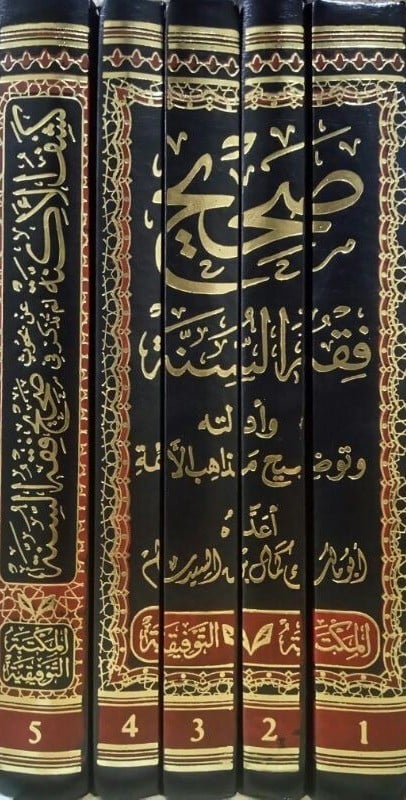 صحيح
فقه السنة
وأدلته
وتوضيح مذاهب الأئمة
أعده
أبو مالك كمال بن السيد سالم
المكتبة التوفيقية
1
2
3
4
كشف الأكنة
عن
لم تذكر في
صحيح فقه السنة
المكتبة
التوفيقية
5